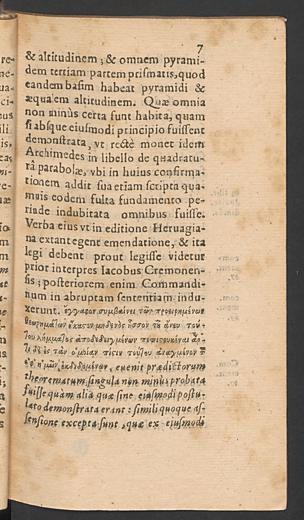 7
& altitudinem ; & omnem pyrami-
dem tertiam partem prismatis, quod
eandem basim habeat pyramidi &
æqualem altitudinem. Quæ omnia
non minùs certa sunt habita, quam
si absque eiusmodi principio fuissent
demonstrata, vt rectè monet idem
Archimedes in libello de quadratu-
râ parabolæ, vbi in huius confirma-
tionem addit sua etiam scripta qua-
muis eodem fulta fundamento pe-
rinde indubitata omnibus fuisse.
Verba eius vt in editione Heruagia-
na extant egent emendatione, & ita
legi debent prout legisse videtur
prior interpres Iacobus Cremonen-
sis ; posteriorem enim Commandi-
num in abruptam sententiam indu-
xerunt. συμβαίνει τῶν προειρημένων
θεωρημάτων ἕκαστον μηδενὸς ἧσσον τῶν ἄνευ τού-
του λήμματος ἀποδεδειγμένων
τὰν ὁμοίαν πίστιν τούτοις
, euenit prædictorum
theorematum singula non minùs probata
fuisse quàm alia quæ sine eiusmodi postu-
lato demonstrata erant : simili quoque as-
sensione excepta sunt, quæ ex eiusmodi